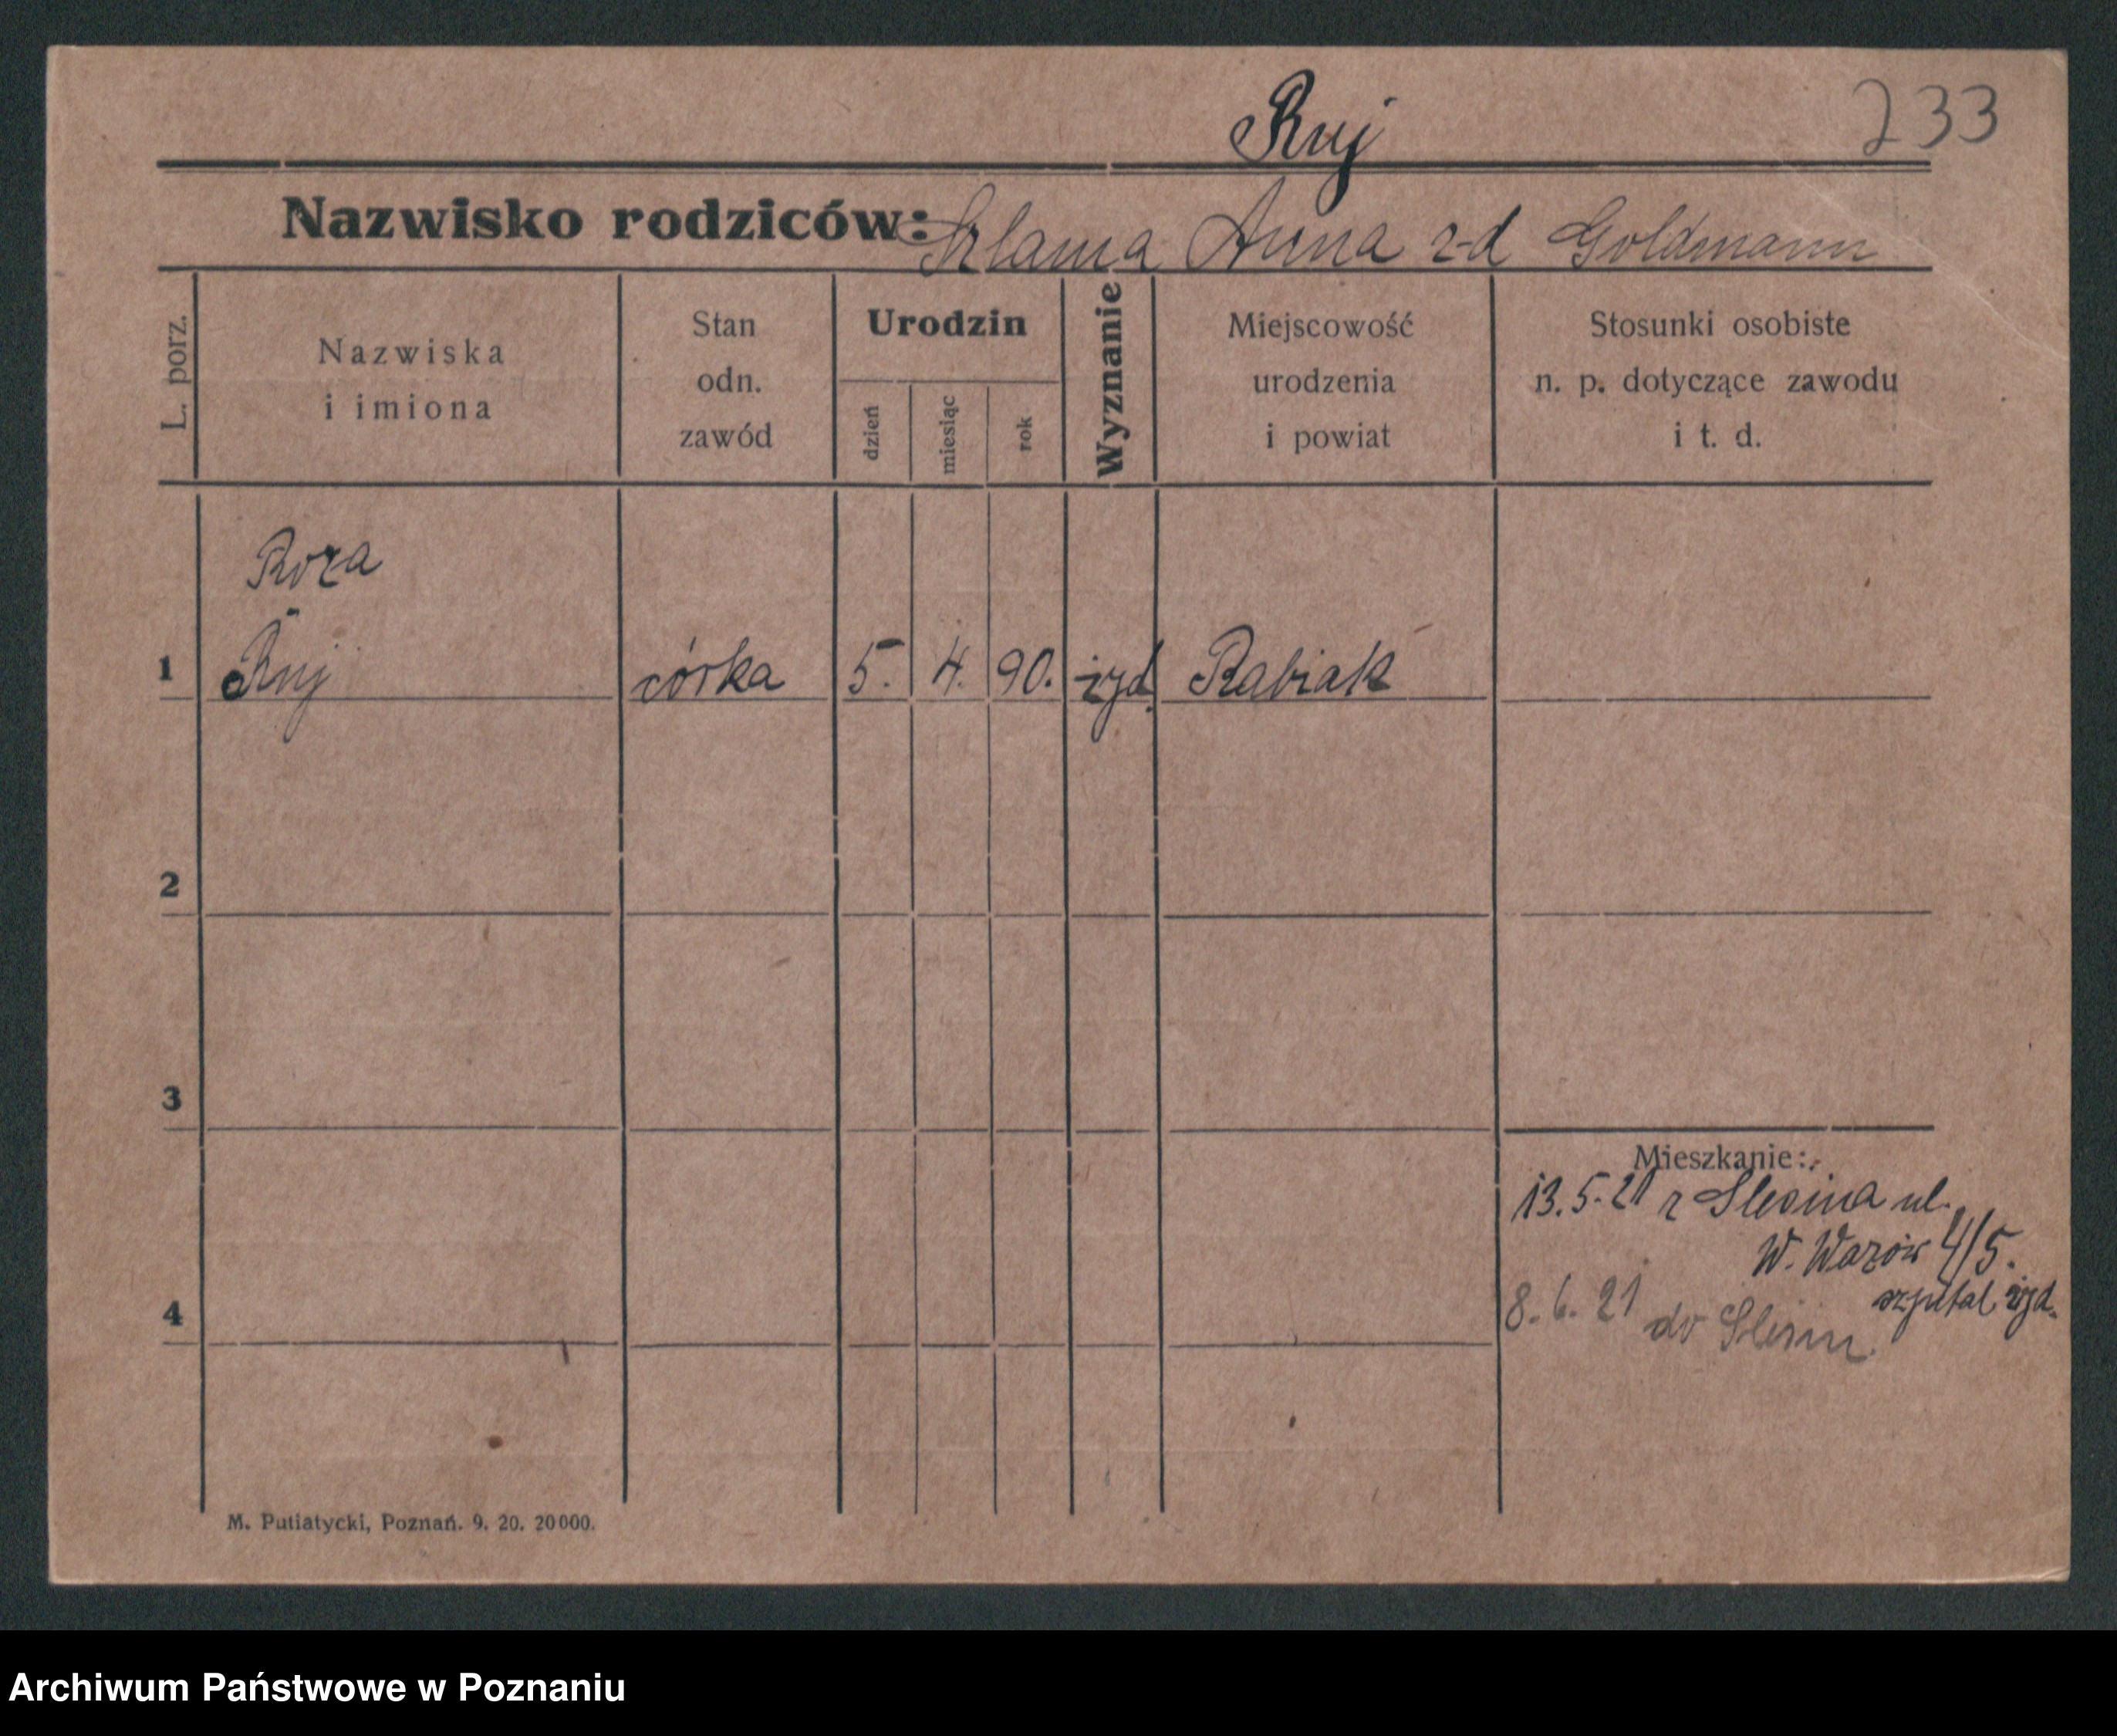 Ruj
233
Nazwisko rodziców: Szlama Anna z-d Goldmann
L. porz.
Nazwiska
i imiona
Stan
odn.
zawód
Urodzin
dzień
miesiąc
rok
Wyznanie
Miejscowość
urodzenia
i powiat
Stosunki osobiste
n. p. dotyczące zawodu
i t. d.
Roza
1 Ruj córka 5. 4. 90. żyd. Babiak
2
3
Mieszkanie:
13.5.21 z Slesina ul.
W. Wazów 4/5.
szpital żyd.
8.6.21 do Slesin.
4
M. Putiatycki, Poznań. 9. 20. 20000.
Archiwum Państwowe w Poznaniu